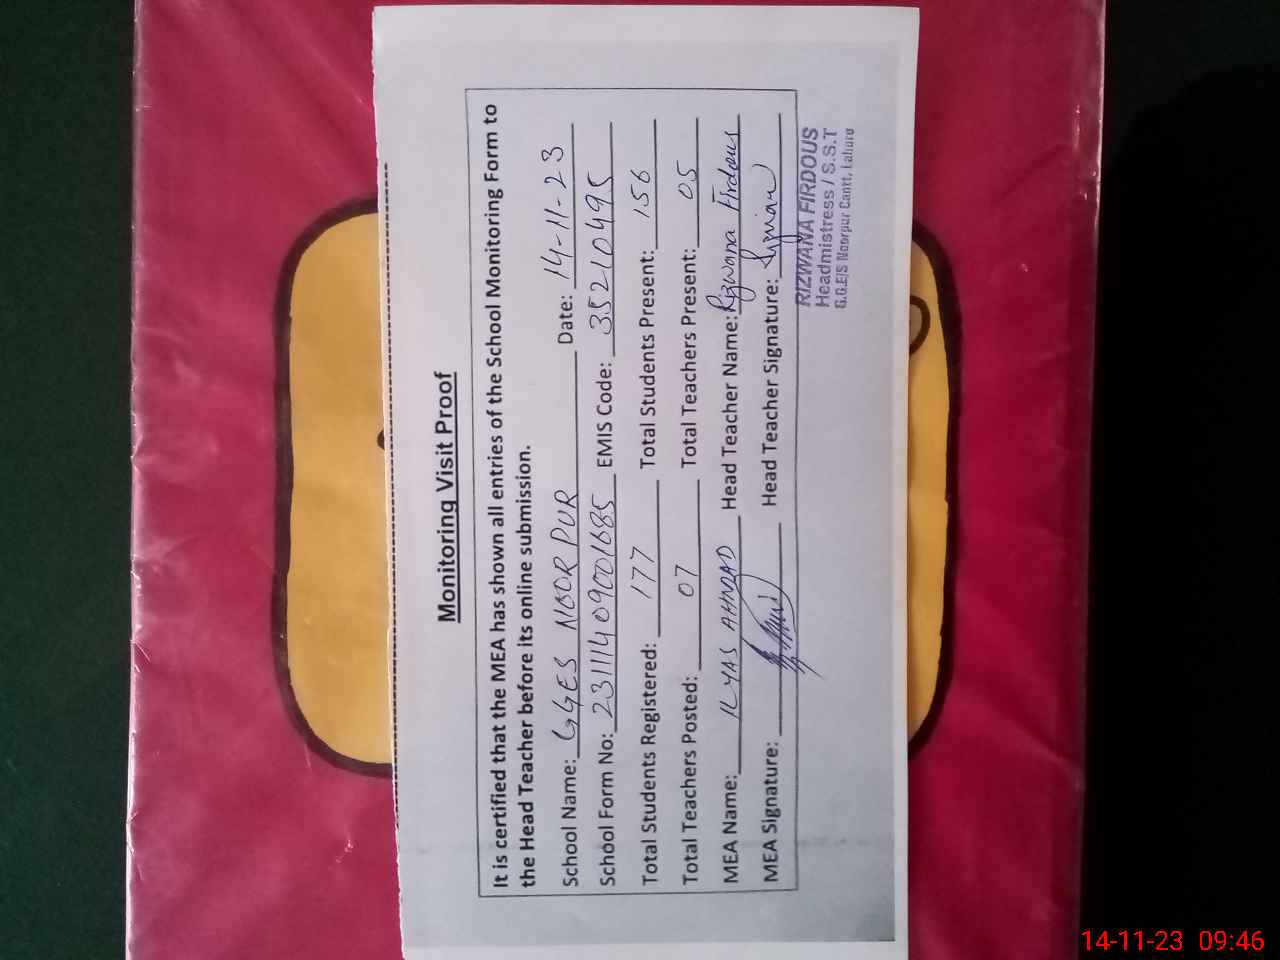 Monitoring Visit Proof
It is certified that the MEA has shown all entries of the School Monitoring Form to
the Head Teacher before its online submission.
School Name: GGES NOOR PUR Date: 14-11-23
School Form No: 23111409001685 EMIS Code: 35210495
Total Students Registered: 177 Total Students Present: 156
Total Teachers Posted: 07 Total Teachers Present: 05
MEA Name: ILYAS AHMAD Head Teacher Name: Rizwana Firdous
MEA Signature: Head Teacher Signature:
RIZWANA FIRDOUS
Headmistress / S.S.T
G.G.E/S Noorpur Cantt, Lahore
14-11-23 09:46